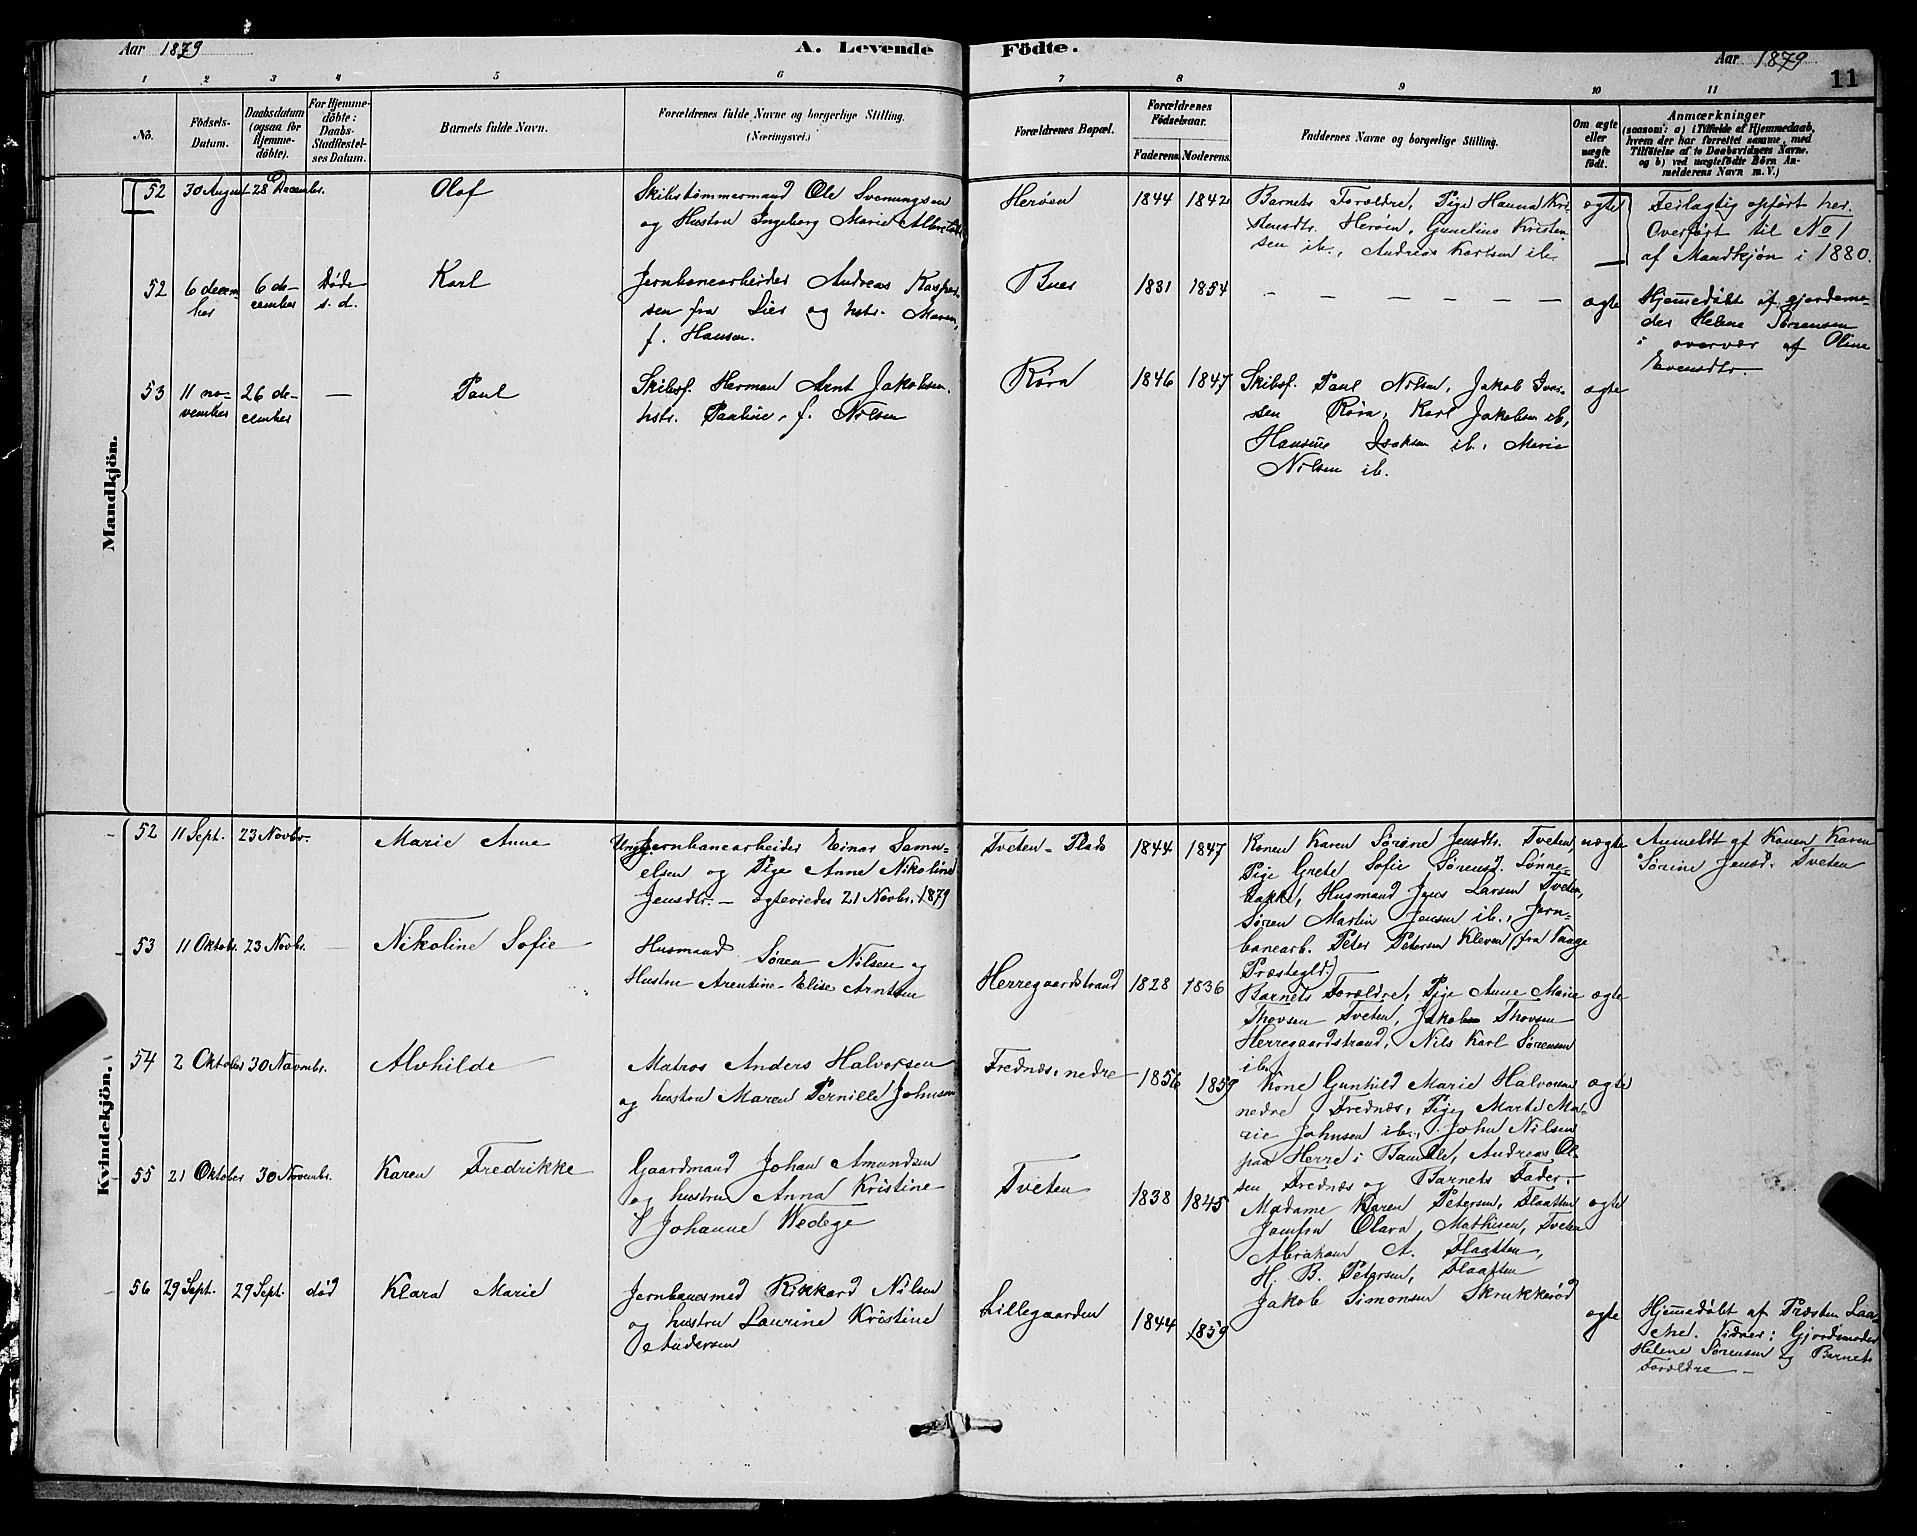 Aar 1879
A. Levende Födte.
Aar 1879
11
1 2 3 4 5 6 7 8 9 10 11
No.
Födsels-Datum.
Daabsdatum (ogsaa for Hjemme-döbte).
For Hjemme-döbte: Daabs-Stadfæstel-ses Datum.
Barnets fulde Navn.
Forældrenes fulde Navne og borgerlige Stilling.
(Næringsvei.)
Forældrenes Bopæl.
Forældrenes Födselsaar.
Faderens. Moderens.
Faddernes Navne og borgerlige Stilling.
Om ægte eller uægte födt.
Anmærkninger
(saasom: a) i Tilfælde af Hjemmedaab,
hvem der har forrettet samme, med
Tilföielse af to Daabsvidners Navne.
og b) ved uægtefödte Börn An-
melderens Navn m. V.)
Mandkjön.
52 30 August 28 Decembr. Olaf
Skibstømmermand Ole Svenungsen
og Hustru Ingeborg Marie
Herøen 1844 1842
Barnets Forældre, Pige Hanna Kri-
stensdtr. Herøen, Gunelius Kristen-
sen ib., Andreas Karlsen ib.
ægte
Feilagtig opført her.
Overført til No 1
af Mandkjøn i 1880.
52 6 decem-
ber
6 de-
cember
Døde
s. d.
Karl
Jernbanearbeider Andreas Kasper-
sen fra Lier og hstr. Maren,
f. Hansen.
Bues 1831 1854
— — — — — — —
ægte
Hjemmedøbt af gjordemo-
der Helene Sørensen
i overvær af Oline
Evensdtr.
53 11 no-
vember
26 de-
cember
—
Paul
Skibsf. Herman Arnt Jakobsen
hstr. Pauline, f. Nilsen
Røra 1846 1847
Skibsf. Paul Nilsen, Jakob Iver-
sen Røra, Karl Jakobsen ib,
Hansine Isaksen ib., Marie
Nilsen ib.
ægte
Kvindekjön.
52 11 Sept. 23 Novbr. Marie Anne
Ungk. Jernbanearbeider Einar Samu-
elsen og Pige Anne Nikoline
Jensdtr. — ægteviedes 21 Novbr. 1879
Tveten-Plads 1844 1847
Konen Karen Sørine Jensdtr. Tveten
Pige Grete Sofie Sørensd. Sønne-
bakke, Husmand Jens Larsen Tveten,
Søren Martin Jensen ib., Jern-
banearb. Peter Petersen Kleven (fra Vaage
Præstegld.)
uægte
Anmeldt af Konen Karen
Sørine Jensd. Tveten
53 11 Oktobr. 23 Novbr. — Nikoline Sofie
Husmand Søren Nilsen og
Hustru Arentine Elise Arntsen
Herregaardstrand 1828 1836
Barnets Forældre, Pige Anne Marie
Thovsen Tveten, Jakob Thovsen
Herregaardstrand, Nils Karl Sørensen
ib.
ægte
54 2 Oktober 30 Novmbr. Alvhilde
Matros Anders Halvorsen
og hustru Maren Pernille Johnsen
Frednæs, nedre 1856 1859
Kone Gunhild Marie Halvorsen
nedre Frednæs, Pige Marte Ma-
rie Johnsen ib., John Nilsen
paa Herre i Bamble, Andreas Ol-
sen Frednæs og Barnets Fader.
ægte
55 21 Oktober 30 Novembr. Karen Fredrikke
Gaardmand Johan Amundsen
og hustru Anna Kristine
Johanne Wedege
Tveten 1838 1845
Madame Karen Petersen, Flaatten
Jomfru Olava Mathisen, Tveten
Abraham A. Flaatten,
H. B. Petersen, Flaatten
Jakob Simonsen Skrukkerød
ægte
56 29 Sept. 29 Sept. død Klara Marie
Jernbanesmed Rikkard Nilsen
og hustru Laurine Kristine
Andersen
Lillegaarden 1844 1859
ægte
Hjemmedøbt af Præsten Laa-
che. Vidner: Gjordemoder
Helene Sørensen og Barnets
Forældre —